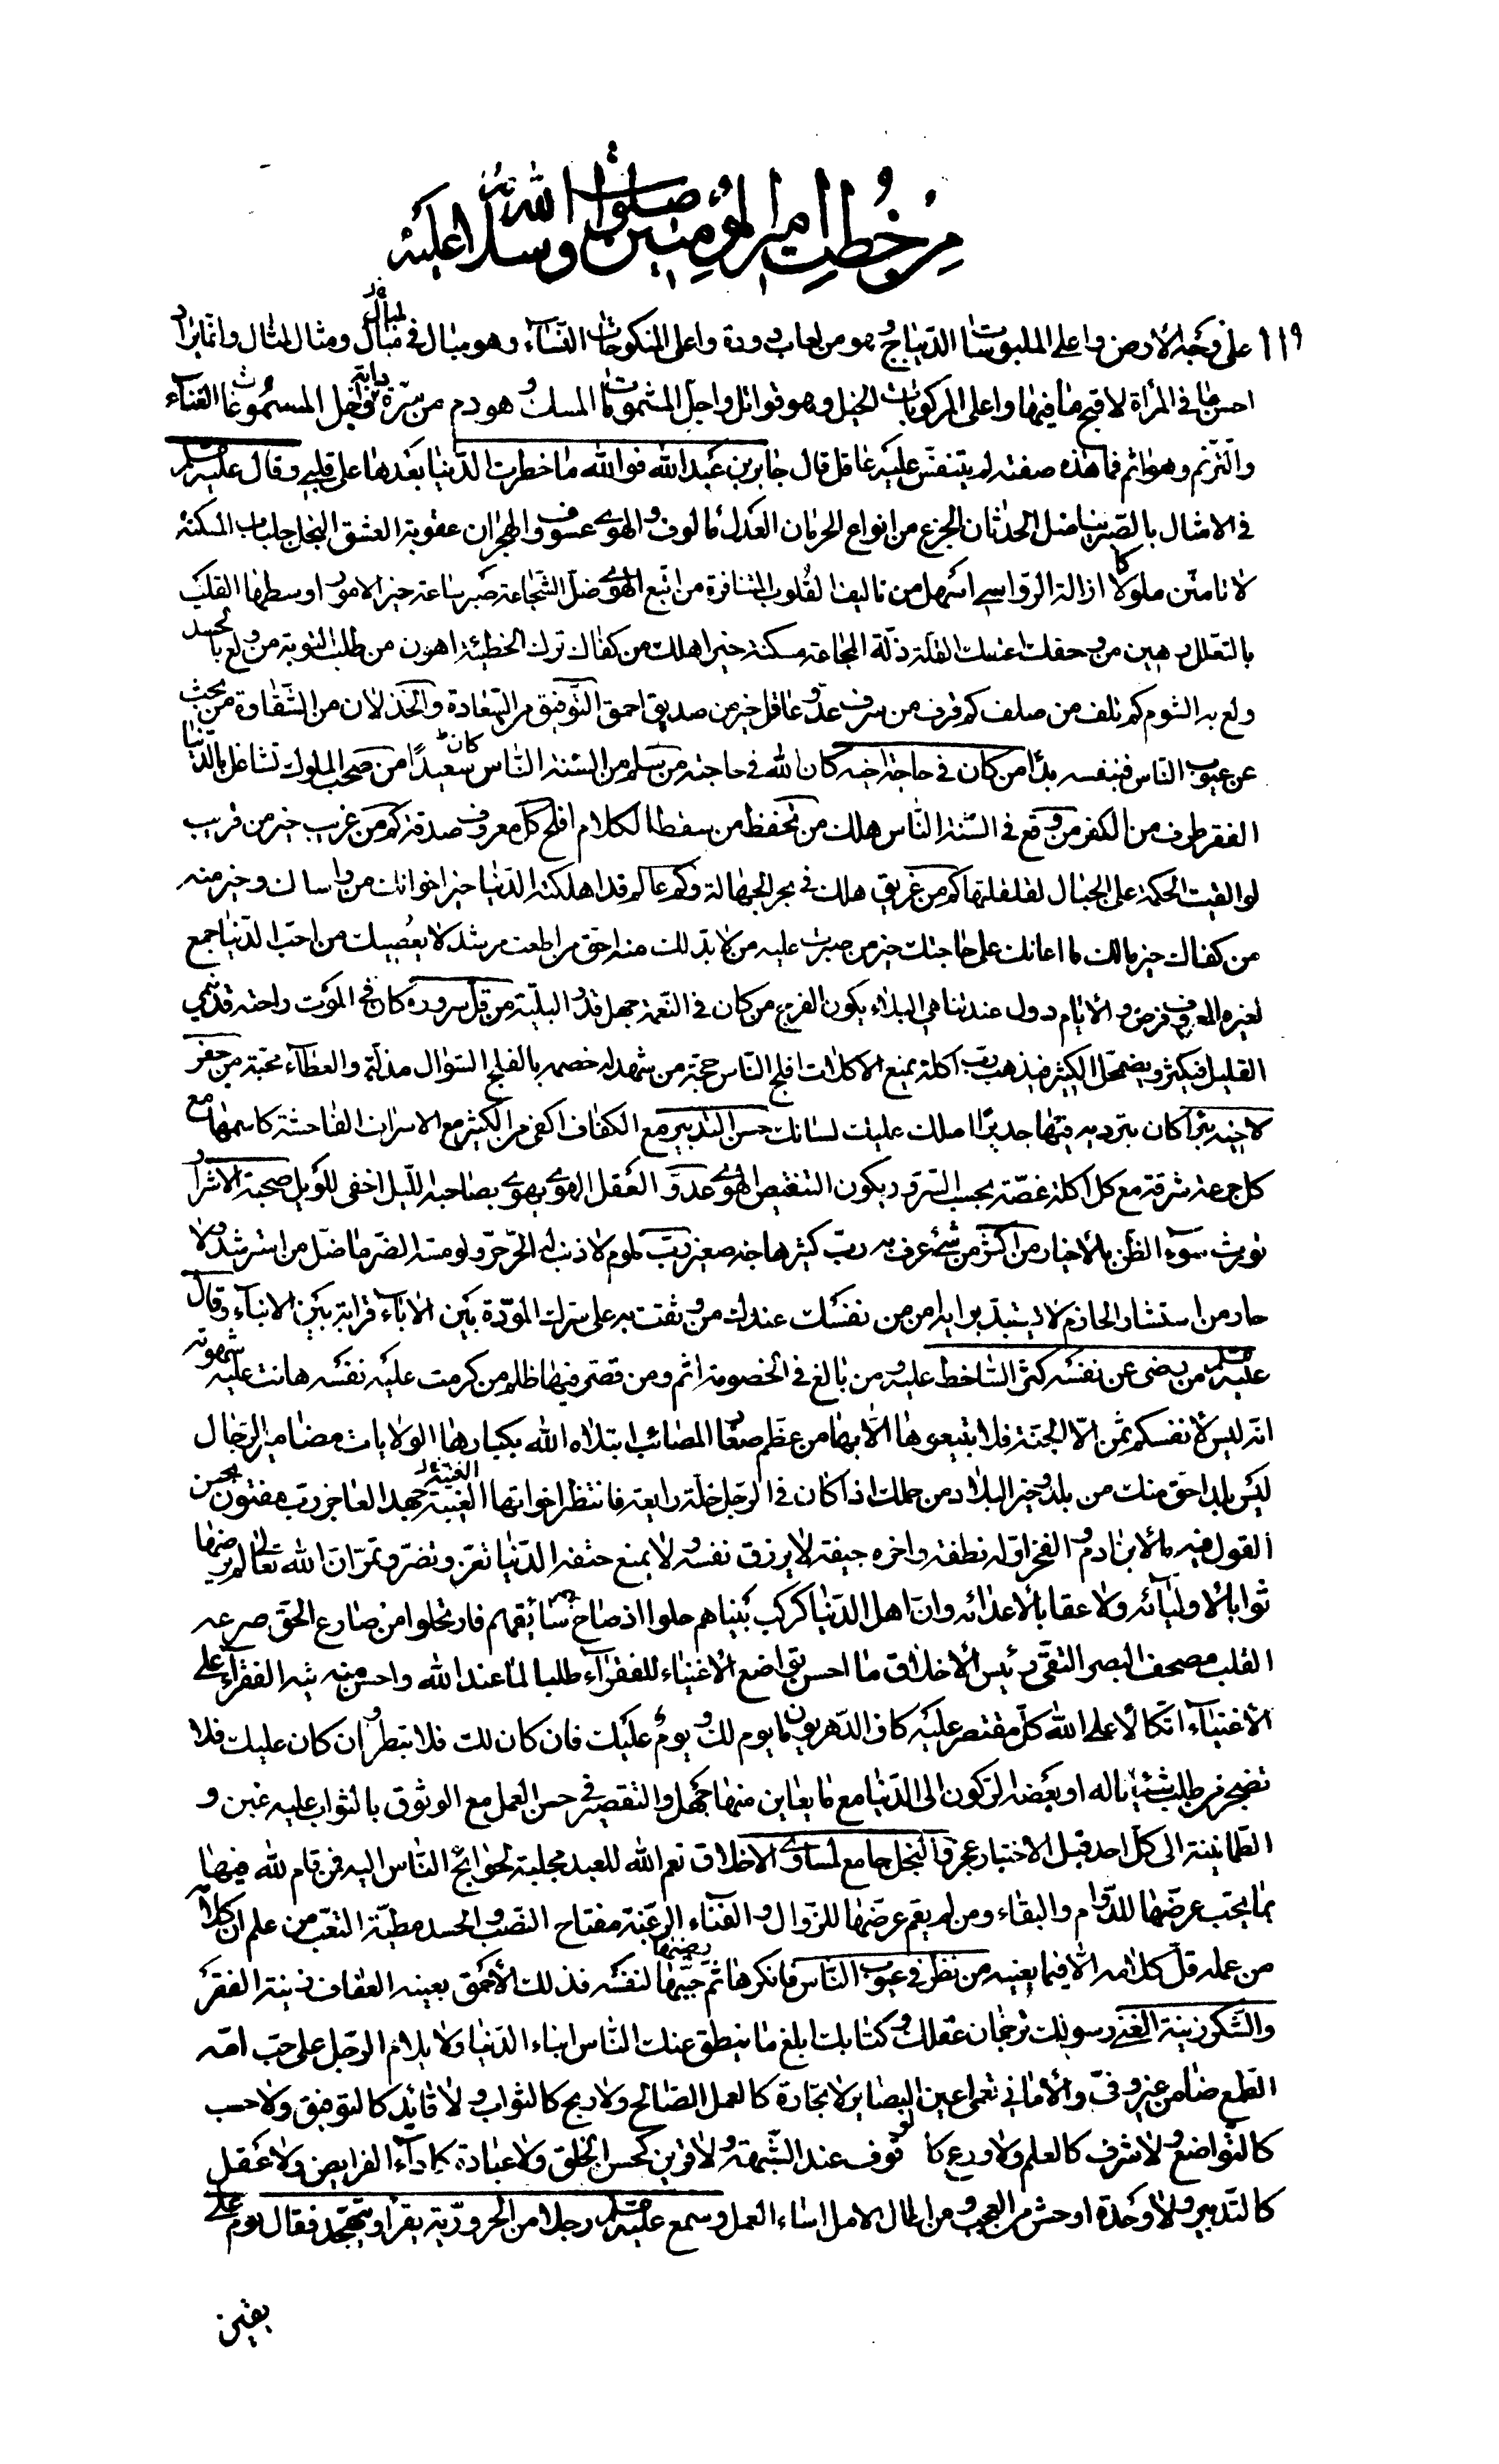 من خطب امير المؤمنين صلوات الله وسلامه عليه
١١٩ على وجه الارض واعلى الملبوسات الديباج وهو من لعاب دودة واعلى المنكوحات النساء وهو مبال في مبال لمبال ومثال لمثال وانما يراد
احسن ما في المرأة لاقبح ما فيها واعلى المركوبات الخيل وهو قواتل واجل المشمومات المسك وهو دم من سرة دابة واجل المسموعات الغناء
والترنم وهو اثم فما هذه صفته لم يتنفس عليه عاقل قال جابر بن عبد الله فوالله ما خطرت الدنيا بعدها على قلبي وقال عليه
في الامثال بالصبر يناضل الحدثان الجزع من انواع الحرمان العدل مالوف والهوى عسوف والهجران عقوبة العشق البخل جلباب المسكنة
لا تامنن ملولا ازالة الرواسي اسهل من تاليف القلوب المتنافرة من اتبع الهوى ضل الشجاعة صبر ساعة خير الامور اوسطها القلب
بالتعلل رهين من ومقك اعتبك القلة ذلة المجاعة مسكنة خير اهلك من كفاك ترك الخطيئة اهون من طلب التوبة من ولع بالحسد
ولع به الشوم كم تلف من صلف كم قرف من سرف عدو عاقل خير من صديق احمق التوفيق من السعادة والخذلان من الشقاوة من بحث
عن عيوب الناس فبنفسه بدا من كان في حاجة اخيه كان الله في حاجته من سلم من السنة الناس كان سعيدا من صحب الملوك تشاغل بالدنيا
الفقر طرف من الكفر من وقع في السنة الناس هلك من تحفظ من سقط الكلام افلح كل معروف صدقة كم من غريب خير من قريب
لو القيت الحكمة على الجبال لقلقلتها كم من غريق هلك في بحر الجهالة وكم عالم قد اهلكته الدنيا خير اخوانك من واساك وخير منه
من كفاك خير مالك ما اعانك على حاجتك خير من صبرت عليه من لا بد لك منه احق من اطعت مرشد لا يعصيك من احب الدنيا جمع
لغيره المعروف فرض والايام دول عند تناهي البلاء يكون الفرج من كان في النعمة جهل قدر البلية من قل سروره كان في الموت راحته قد ينمي
القليل فيكثر ويضمحل الكثير فيذهب رب اكلة يمنع الاكلات افلج الناس حجة من شهد له خصمه بالفلج السؤال مذلة والعطاء محبة من حفر
لاخيه بئرا كان بترديه فيها جديرا املك عليك لسانك حسن التدبير مع الكفاف اكفى من الكثير مع الاسراف الفاحشة كاسمها مع
كل جرعة شرقة مع كل اكلة غصة بحسب السرور يكون التنغيص الهوى عدو العقل الهوى يهوي بصاحبه الليل اخفى للويل صحبة الاشرار
تورث سوء الظن بالاخيار من اكثر من شيء عرف به رب كثير هاجه صغير رب ملوم لا ذنب له الحر حر ولو مسه الضر ما ضل من استرشد ولا
حار من استشار الحازم لا يستبد برايه امن من نفسك عندك من وثقت به على سرك المودة بين الاباء قرابة بين الابناء وقال
عليه من رضي عن نفسه كثر الساخط عليه ومن بالغ في الخصومة اثم ومن قصر فيها ظلم من كرمت عليه نفسه هانت عليه شهوته
انه ليس لانفسكم ثمن الا الجنة فلا تبيعوها الا بها من عظم صغار المصائب ابتلاه الله بكبارها الولايات مضامير الرجال
ليس بلد احق منك من بلد وخير البلاد من حملك اذا كان في الرجل خلة رايعة فانتظر اخواتها الغيبة جهد العاجز رب مفتون بحسن
القول فيه ما لابن ادم والفخر اوله نطفة واخره جيفة لا يرزق نفسه ولا يمنع حتفه الدنيا تغر وتضر وتمر ان الله تعالى لم يرضها
ثوابا لاوليائه ولا عقابا لاعدائه وان اهل الدنيا كركب بيناهم حلوا اذ صاح سائقهم فارتحلوا من صارع الحق صرعه
القلب مصحف البصر التقى رئيس الاخلاق ما احسن تواضع الاغنياء للفقراء طلبا لما عند الله واحسن منه تيه الفقراء على
الاغنياء اتكالا على الله كل مقتصر عليه كاف الدهر يومان يوم لك ويوم عليك فان كان لك فلا تبطر وان كان عليك فلا
تضجر من طلب شيئا ناله او بعضه الركون الى الدنيا مع ما يعاين منها جهل والتقصير في حسن العمل مع الوثوق بالثواب عليه غبن و
الطمانينة الى كل احد قبل الاختبار عجز والبخل جامع لمساوي الاخلاق نعم الله للعبد مجلبة لحوائج الناس اليه فمن قام لله فيها
بما يحب عرضها للدوام والبقاء ومن لم يقم عرضها للزوال والفناء الرغبة مفتاح النصب والحسد مطية التعب من علم ان كلامه
من عمله قل كلامه الا فيما يعنيه من نظر في عيوب الناس فانكرها ثم رضيها لنفسه فذلك الاحمق بعينه العفاف زينة الفقر
والشكر زينة الغنى رسولك ترجمان عقلك وكتابك ابلغ ما ينطق عنك الناس ابناء الدنيا ولا يلام الرجل على حب امه
الطمع ضامن غير وفي والاماني تعمي اعين البصاير لا تجارة كالعمل الصالح ولا ربح كالثواب ولا قائد كالتوفيق ولا حسب
كالتواضع ولا شرف كالعلم ولا ورع كالوقوف عند الشبهة ولا قرين كحسن الخلق ولا عبادة كاداء الفرايض ولا عقل
كالتدبير ولا وحدة اوحش من العجب ومن اطال الامل اساء العمل وسمع عليه رجلا من الحرورية يقرا ويتهجد فقال نوم على
يقين